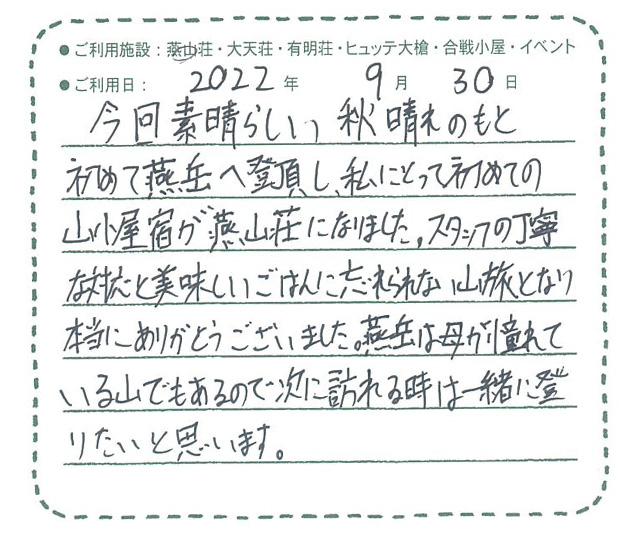 ●ご利用施設：燕山荘・大天荘・有明荘・ヒュッテ大槍・合戦小屋・イベント
●ご利用日： 2022 年 9 月 30 日
今回素晴らしいっ秋晴れのもと
初めて燕岳へ登頂し、私にとって初めての
山小屋宿が燕山荘になりました。スタッフの丁寧
な対応と美味しいごはんに忘れられない山旅となり
本当にありがとうございました。燕岳は母が憧れて
いる山でもあるので次に訪れる時は一緒に登
りたいと思います。